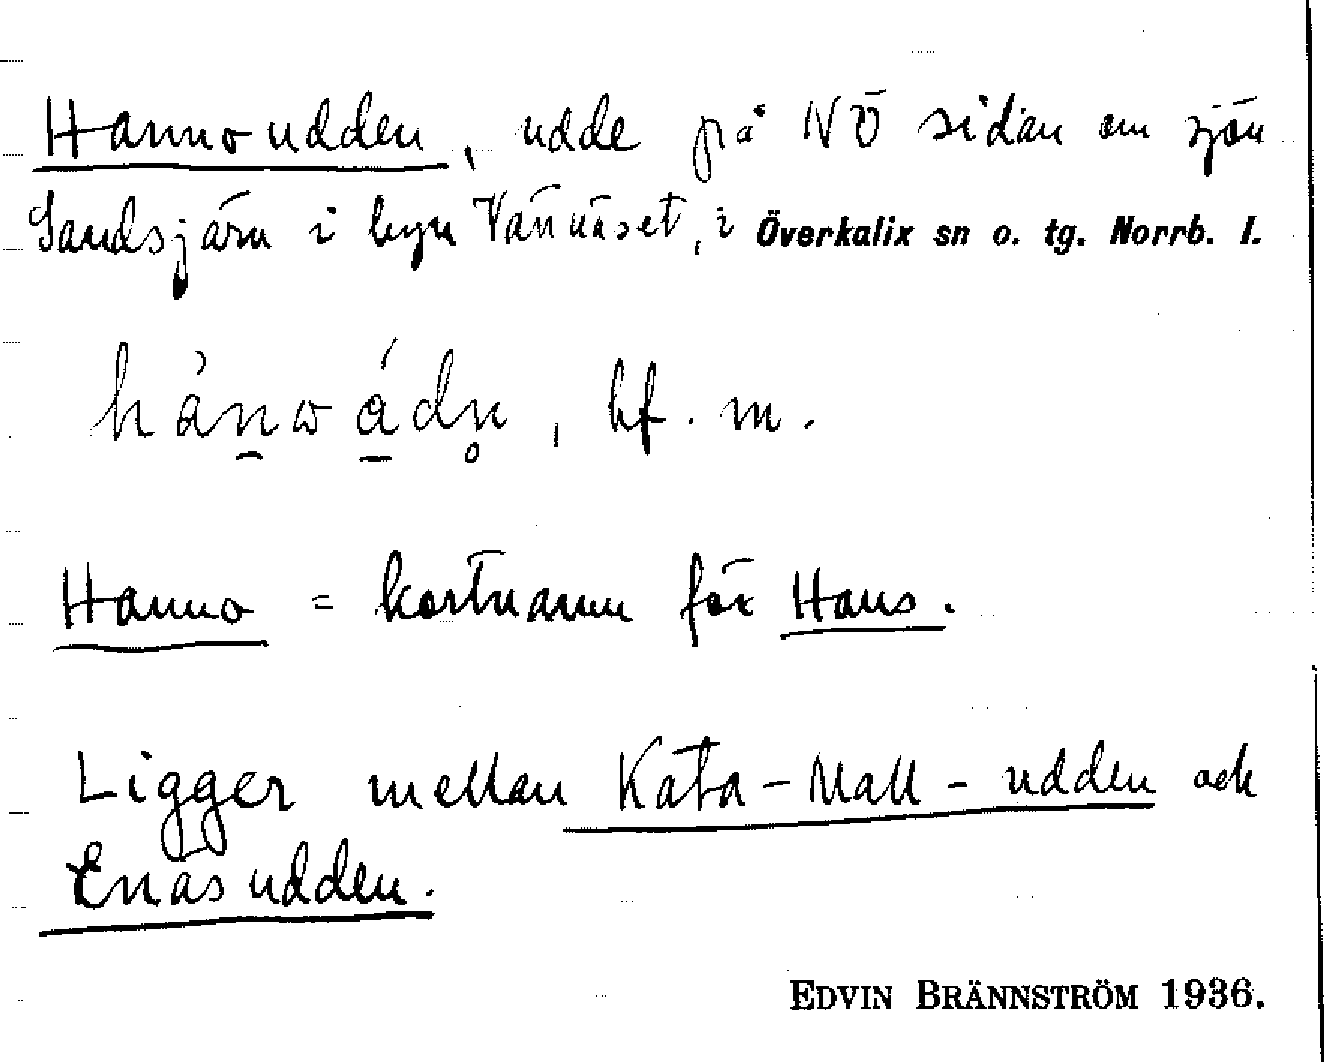 Hannoudden, udde på NÖ sidan om sjön
Sandsjärn i byn Vännäset, i Överkalix sn o. tg. Norrb. l.
hànwádn̥, bf. m.
Hanno = kortnamn för Hans.
Ligger mellan Kata-Mall-udden och
Enasudden.
EDVIN BRÄNNSTRÖM 1936.